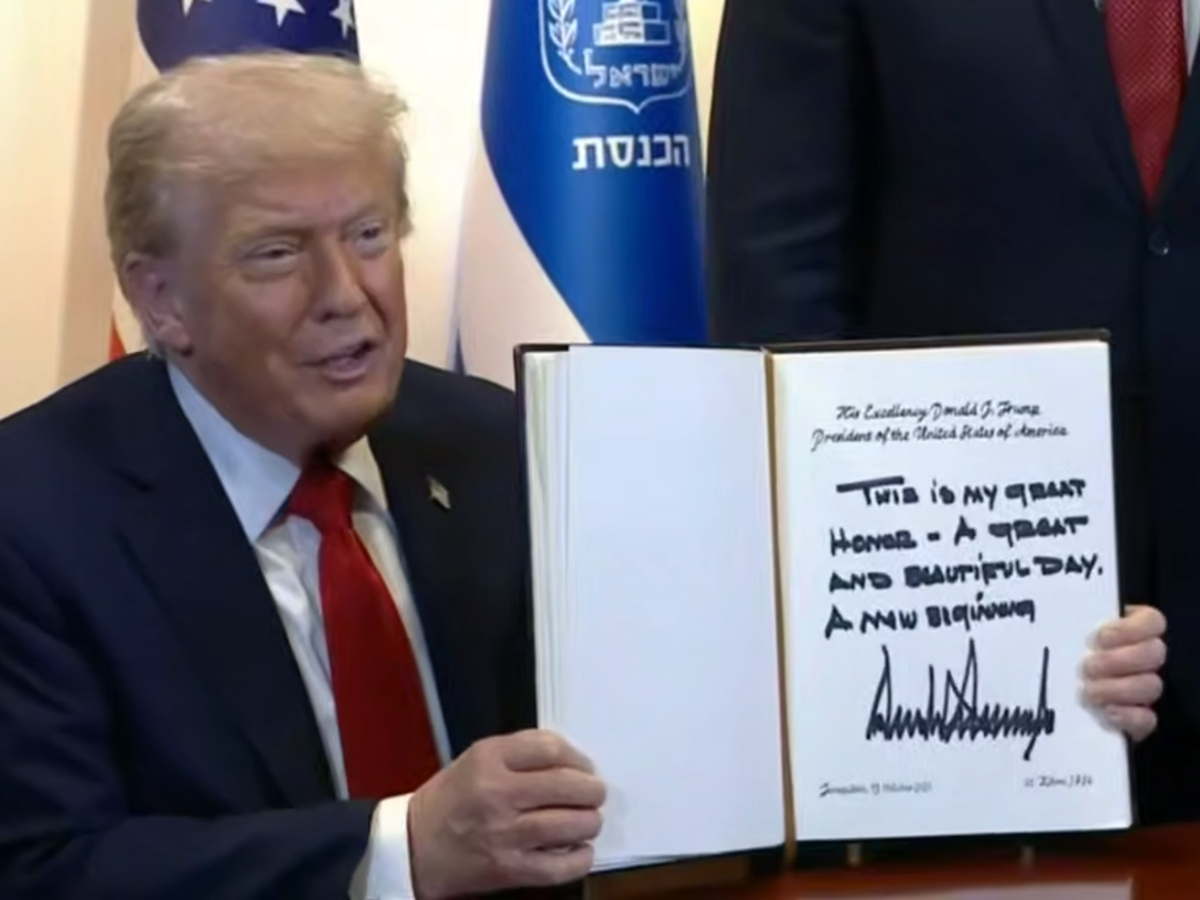 ישראל
הכנסת
His Excellency Donald J. Trump
President of the United States of America
THIS IS MY GREAT
HONOR - A GREAT
AND BEAUTIFUL DAY.
A NEW BIGINNING
Jerusalem, 13 October 2025